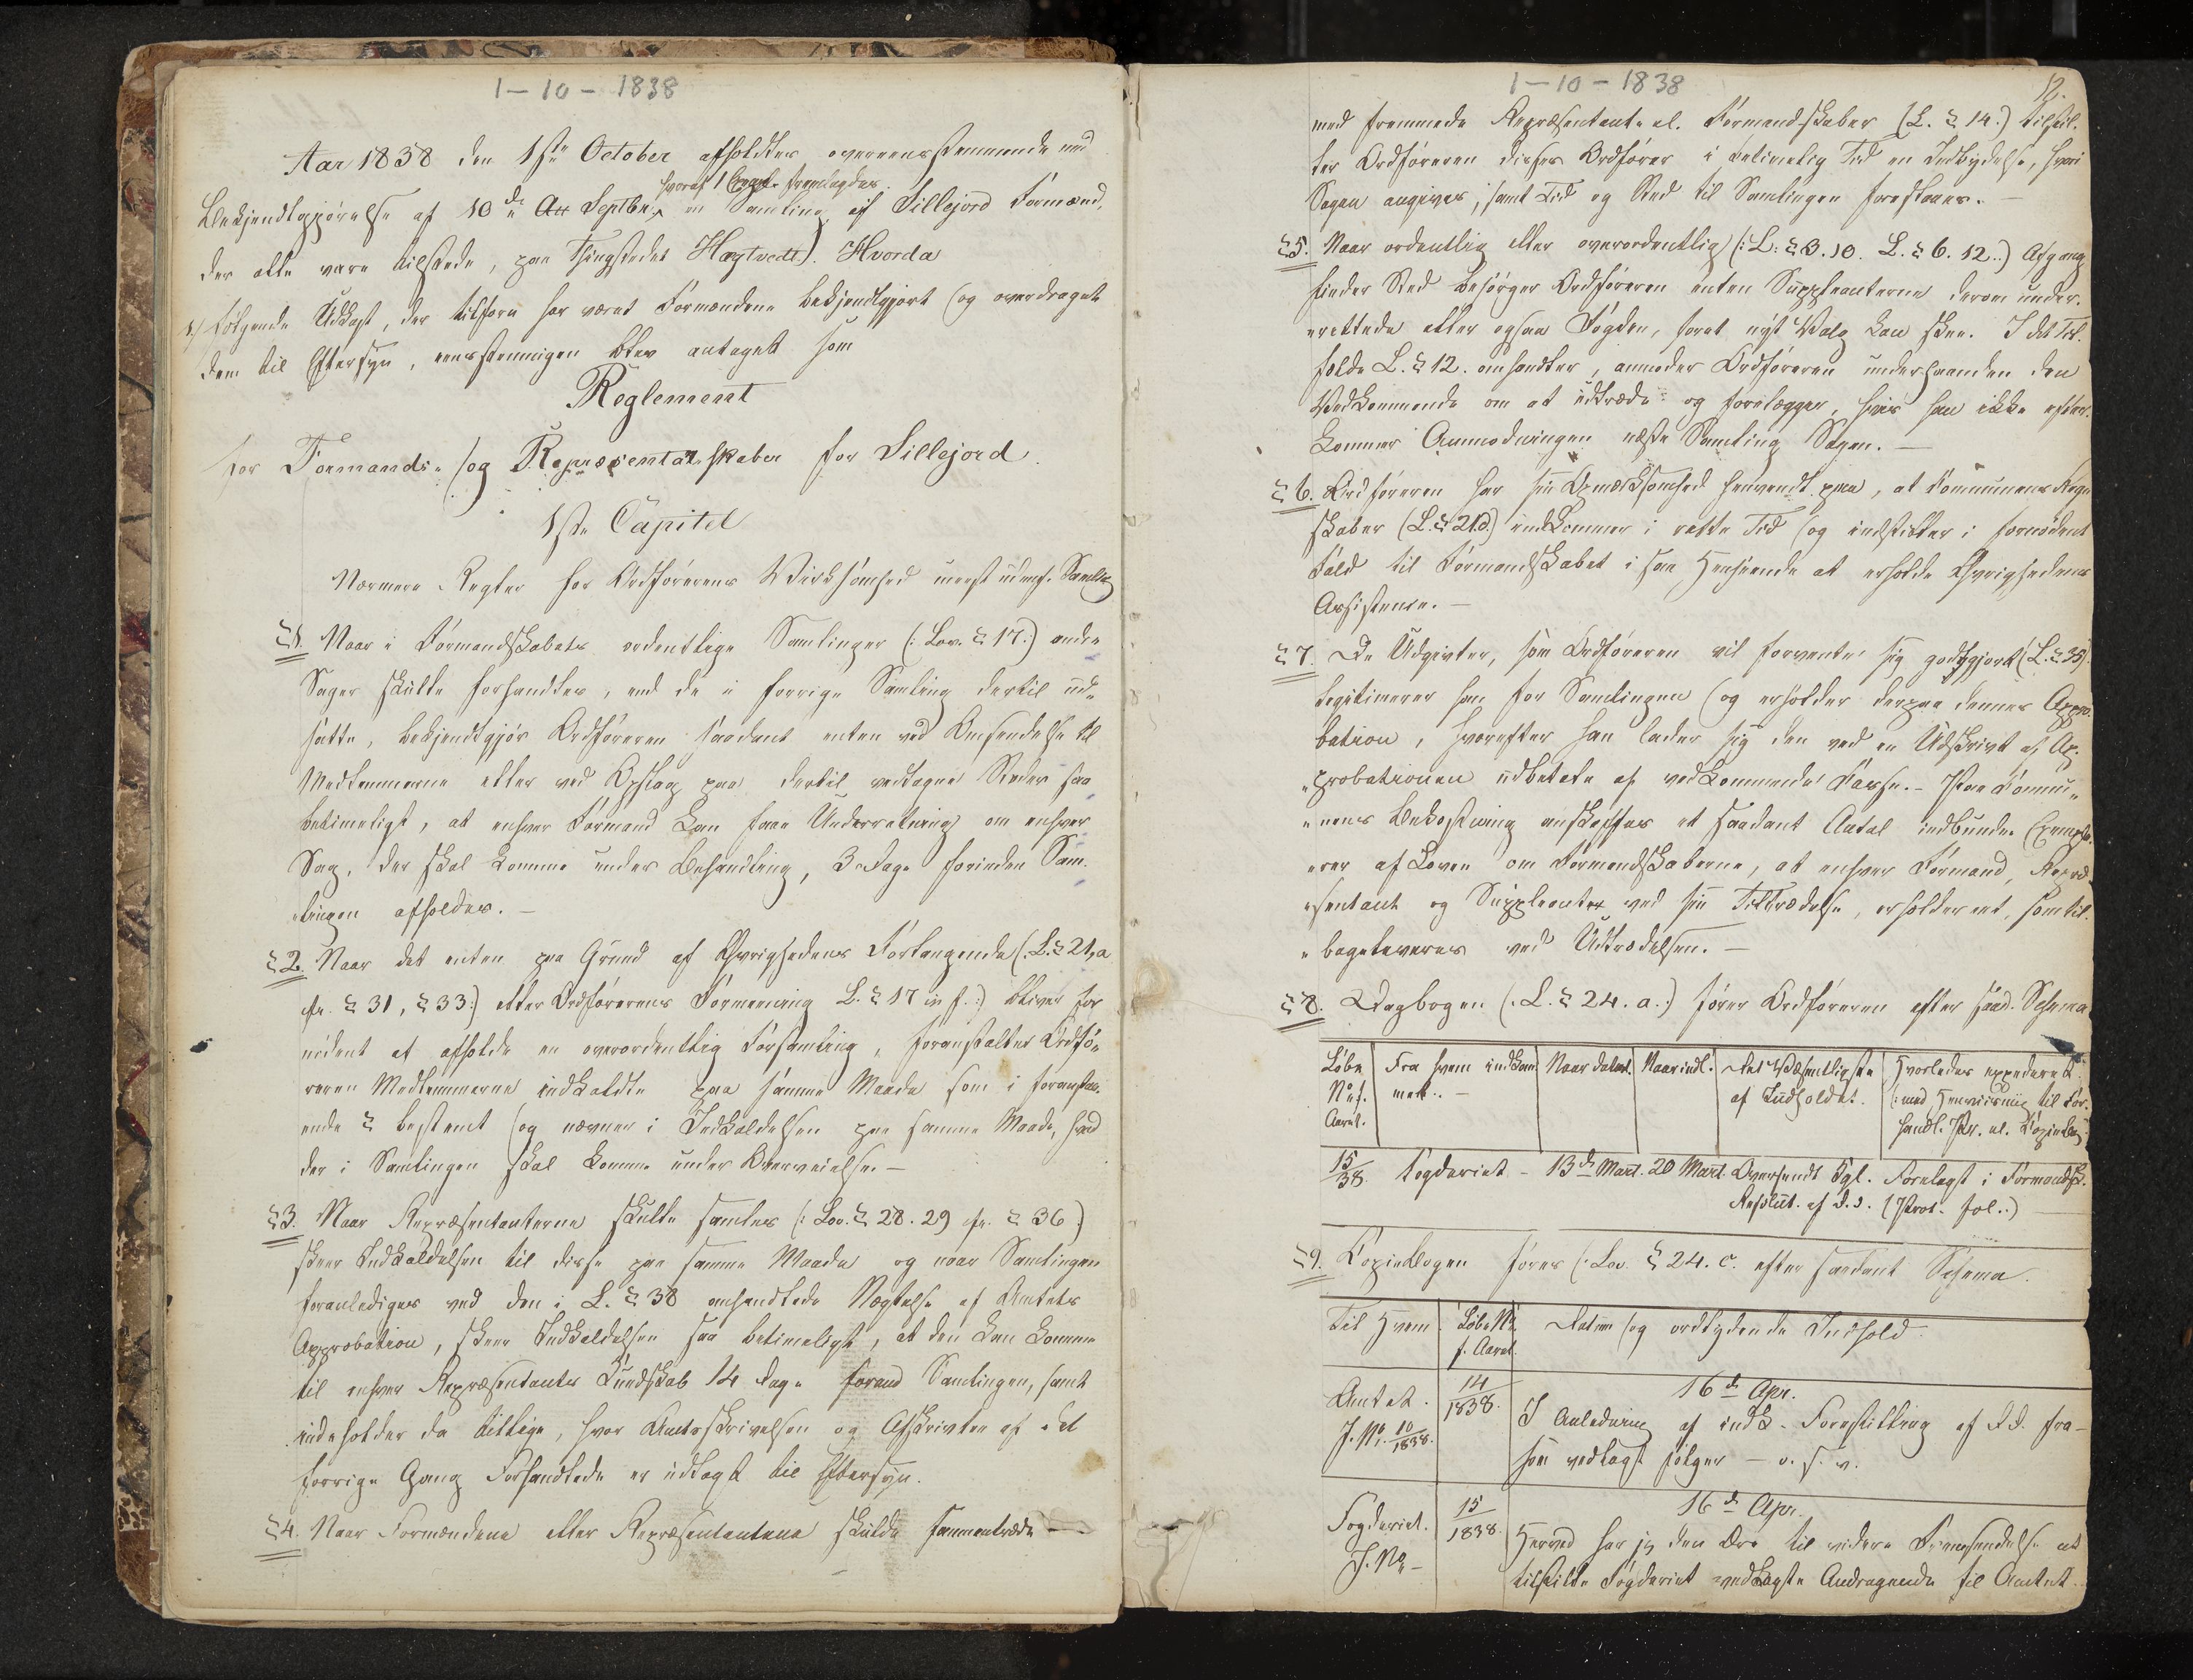 1-10-1838
Aar 1838 den 1ste October afholdtes overeensstemmende med
hvoraf 1 fremlagdes
Bekjendtgjørelse af 10de Septbr. en Samling af Sillejord Formænd,
der alle vare tilstede, paa Thingstedet Hægtvedt. Hvorda
1) følgende Udkast, der tilforn har været Formændene bekjendtgjort og overdraget
dem til Eftersyn, eensstemmigen blev antaget som
Reglement
for Formands- og Repræsentantskaber for Sillejord.
1ste Capitel
Nærmere Regler for Ordførerens Virksomhed meest udenf. Samling
§1. Naar i Formandskabets ordentlige Samlinger (: Lov. § 17:) andre
Sager skulle forhandles, end de i forrige Samling dertil ud-
satte, bekjendtgjør Ordføreren saadant enten ved Omsendelse til
Medlemmerne eller ved Opslag paa dertil vedtagne Steder saa
betimeligt, at enhver Formand kan faae Underretning om enhver
Sag, der skal komme under Behandling, 3 Dage forinden Sam-
lingen afholdes. —
§2. Naar det enten paa Grund af Øvrighedens Forlangende (: L. § 21, a
cfr. § 31, § 33:) eller Ordførerens Formening L. § 17 in f.:) bliver for
nødent at afholde en overordentlig Forsamling, foranstalter Ordfø-
reren Medlemmerne indkaldte paa samme Maade som i foranstaa-
ende § bestemt og nævner i Indkaldelsen paa samme Maade, hvad
der i Samlingen skal komme under Overveielse. —
§3. Naar Repræsentanterne skulle samles (: Lov. § 28. 29 cfr. § 36:)
skeer Indkaldelsen til disse paa samme Maade og naar Samlingen
foranlediges ved den i L. § 38 omhandlede Nægtelse af Amtets
Approbation, skeer Indkaldelsen saa betimeligt, at den kan komme
til enhver Repræsentants Kundskab 14 Dage forend Samlingen, samt
indeholder da tillige, hvor Amtsskrivelsen og Afskrivter af det
forrige Gang Forhandlede er udlagt til Eftersyn.
§4. Naar Formændene eller Repræsentantene skulde sammentræde —
1-10-1838
12.
med fremmede Repræsentant- el. Formandskaber (L. § 14.) tilstil-
ler Ordføreren disses Ordfører i betimelig Tid en Indbydelse, hvori
Sagen angives, samt Tid og Sted til Samlingen foreslaaes. —
§5. Naar ordentlig eller overordentlig (: L. § 3. 10. L. § 6. 12.:) Afgang
finder Sted besørger Ordføreren enten Suppleanterne derom under-
rettede eller ogsaa Fogden, foret nyt Valg kan skee. I det Til-
fælde L. § 12. omhandler, anmoder Ordføreren underhaanden den
Vedkommende om at udtræde og forelægger, hvis han ikke efter-
kommer Anmodningen næste Samling Sagen. —
§6. Ordføreren har sin Opmærksomhed henvendt paa, at Kommunens Regn
skaber (L. § 21 d.) indkommer i rette Tid og indstiller i fornødent
Fald til Formandskabet i saa Henseende at erholde Øvrighedens
Assistence. —
§7. De Udgivter, som Ordføreren vil forvente sig godtgjort (L. § 35)
legitimerer han for Samlingen og erholder derpaa dennes Appro-
bation, hvorefter han lader sig den ved en Udskrivt af Ap-
probationen udbetale af vedkommende Casse. — Paa Commu-
nens Bekostning anskaffes et saadant Antal indbundne Exempla-
rer af Loven om Formandskaberne, at enhver Formand, Repræ-
sentant og Suppleanter ved sin Tiltrædelse, erholder et, som til-
bageleveres ved Udtrædelsen. —
§8. Dagbogen (: L. § 24. a.:) fører Ordføreren efter saad. Schema
Løbe No f. Aaret. | Fra hvem indkommet. — | Naar dateret. | Naar indl. | Det Væsentligste af Indholdet. | Hvorledes expederet (: med Henviisning til For- handl. Pr. el. Kopiebog:
15/38. Fogderiet — 13de Mart. 20 Mart. Oversendt Kgl. Forelagt i Formandsk.
Resolut. af D. D. (Prot. fol. :)
§9. Kopiebogen føres (: Lov. § 24. c. efter saadant Schema.
Til Hvem | Løbe No f. Aaret. | Datum og ordlydende Indhold.
Amtet. J. No. 10/1838. | 14/1838. | 16de Apr.
I Anledning af indk. Forestilling af D. D. fra —
som vedlagt følger — o. s. v.
Fogderiet. J. No — | 15/1838. | 16de Apr.
Herved har jeg den Ære til videre Fremsendelse at
tilstille Fogderiet vedlagte Andragende til Amtet.